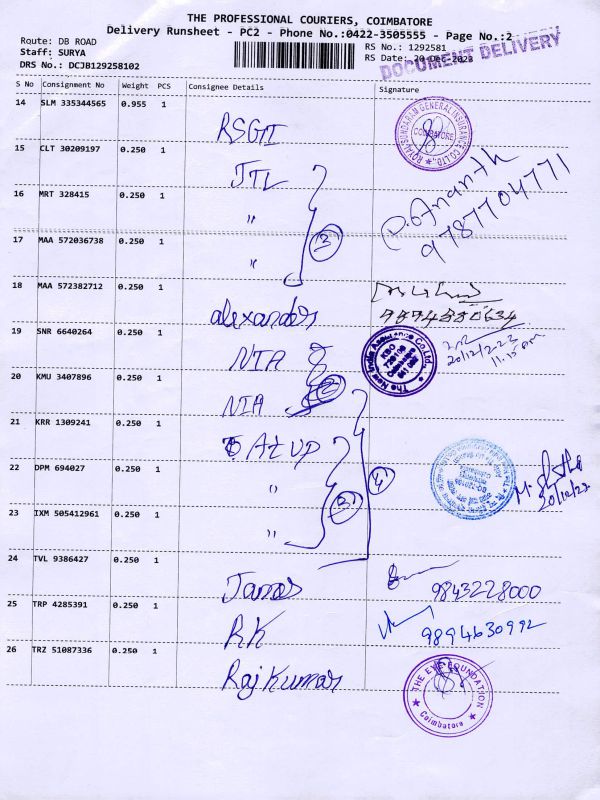 THE PROFESSIONAL COURIERS, COIMBATORE
Delivery Runsheet - PC2 - Phone No.:0422-3505555 - Page No.:2
Route: DB ROAD
Staff: SURYA
DRS No.: DCJB129258102
RS No.: 1292581
RS Date: 20-Dec-2023
DOCUMENT DELIVERY
S No Consignment No Weight PCS Consignee Details Signature
14 SLM 335344565 0.955 1 RSGI
ROYAL SUNDARAM GENERAL INSURANCE CO.LTD. COIMBATORE
15 CLT 30209197 0.250 1 JTL
P. Ananth
9787704771
16 MRT 328415 0.250 1 "
17 MAA 572036738 0.250 1 "
3
18 MAA 572382712 0.250 1 alexander
19 SNR 6640264 0.250 1 NIA
The New India Assurance Co.Ltd.
20/12/23
11.15 am
20 KMU 3407896 0.250 1 NIA
2
21 KRR 1309241 0.250 1 At up
22 DPM 694027 0.250 1 "
3
4
20/12/23
23 IXM 505412961 0.250 1 "
24 TVL 9386427 0.250 1 James
9843228000
25 TRP 4285391 0.250 1 RK
9894630992
26 TRZ 51087336 0.250 1 Raj Kumar
THE EYE FOUNDATION
Coimbatore